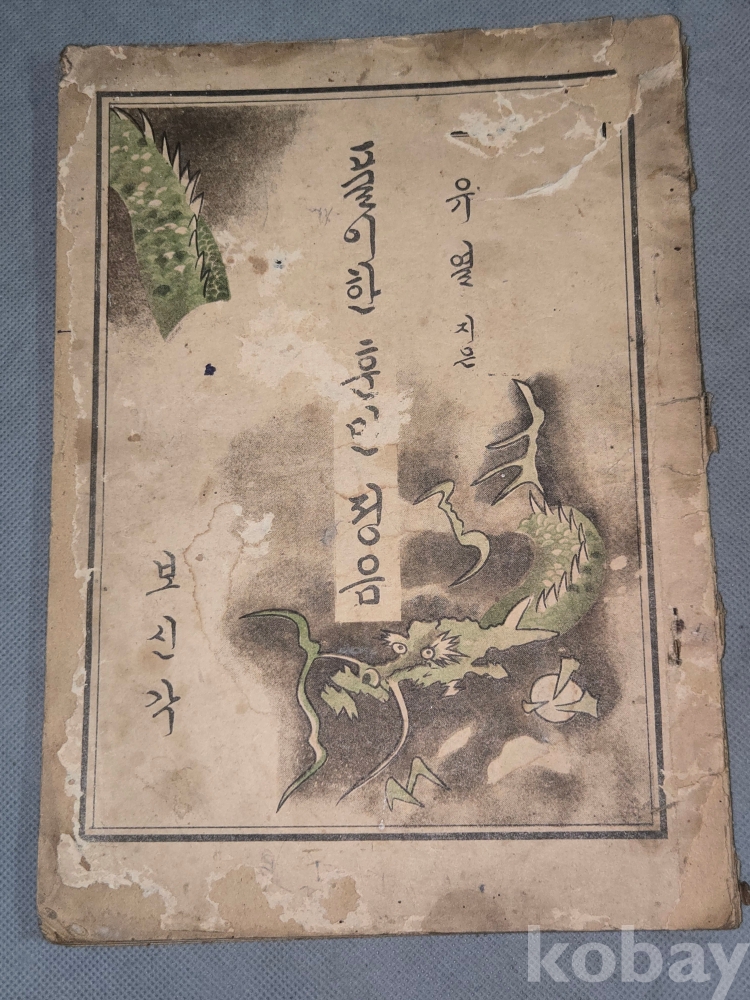 풀이한 훈민정음
유 열 지 은
보 신 각
kobay